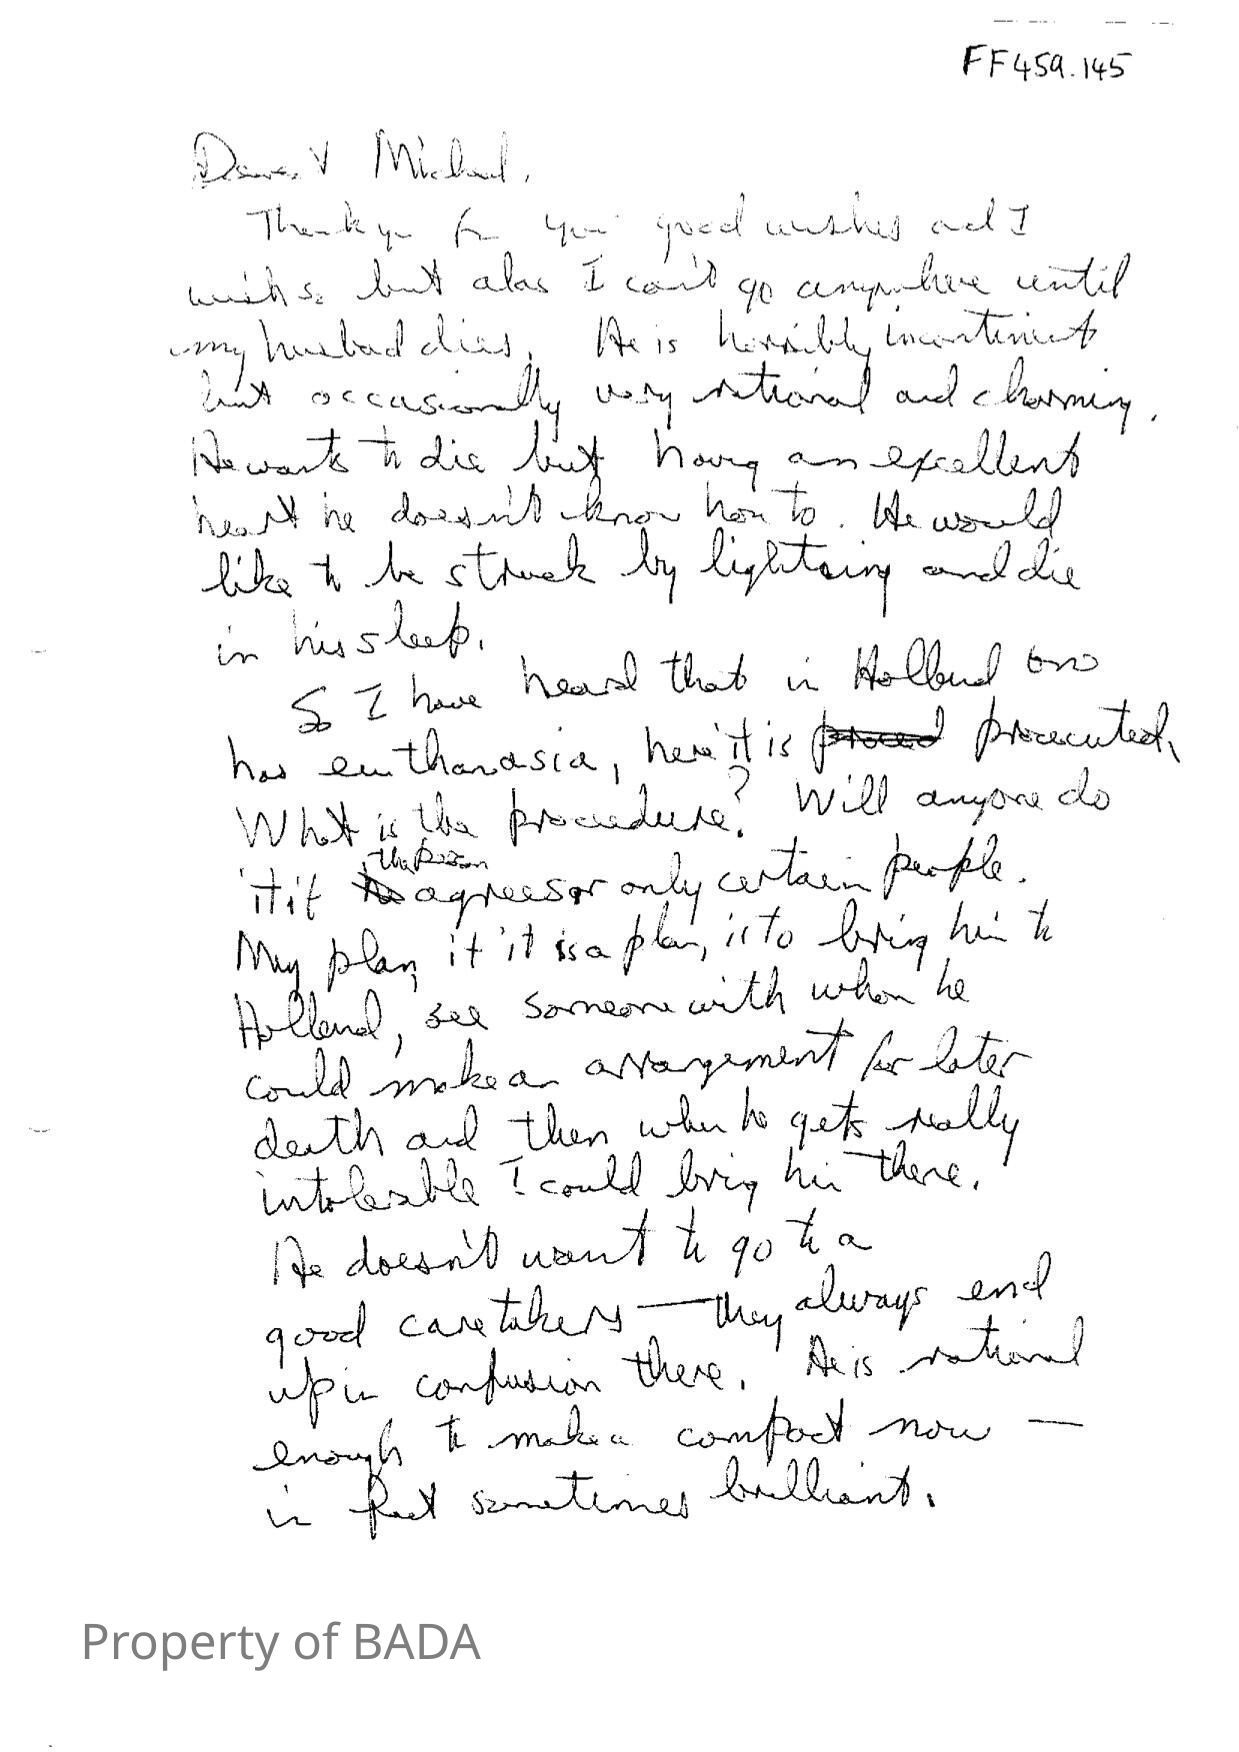 FF459.145
Dearest Michael,
Thank you for your good wishes and I
wish so but alas I can't go anywhere until
my husband dies. He is horribly incontinent
but occasionally very rational and charming.
He wants to die but having an excellent
heart he doesn't know how to. He would
like to be struck by lightning and die
in his sleep.
So I have heard that in Holland one
has euthanasia, here it is proced prosecuted.
What is the procedure? Will anyone do
the person
it if he agrees or only certain people.
My plan, if it is a plan, is to bring him to
Holland, see someone with whom he
could make an arrangement for later
death and then when he gets really
intolerable I could bring him there.
He doesn't want to go to a
good caretakers — they always end
up in confusion there. He is rational
enough to make a compact now —
in fact sometimes brilliant.
Property of BADA